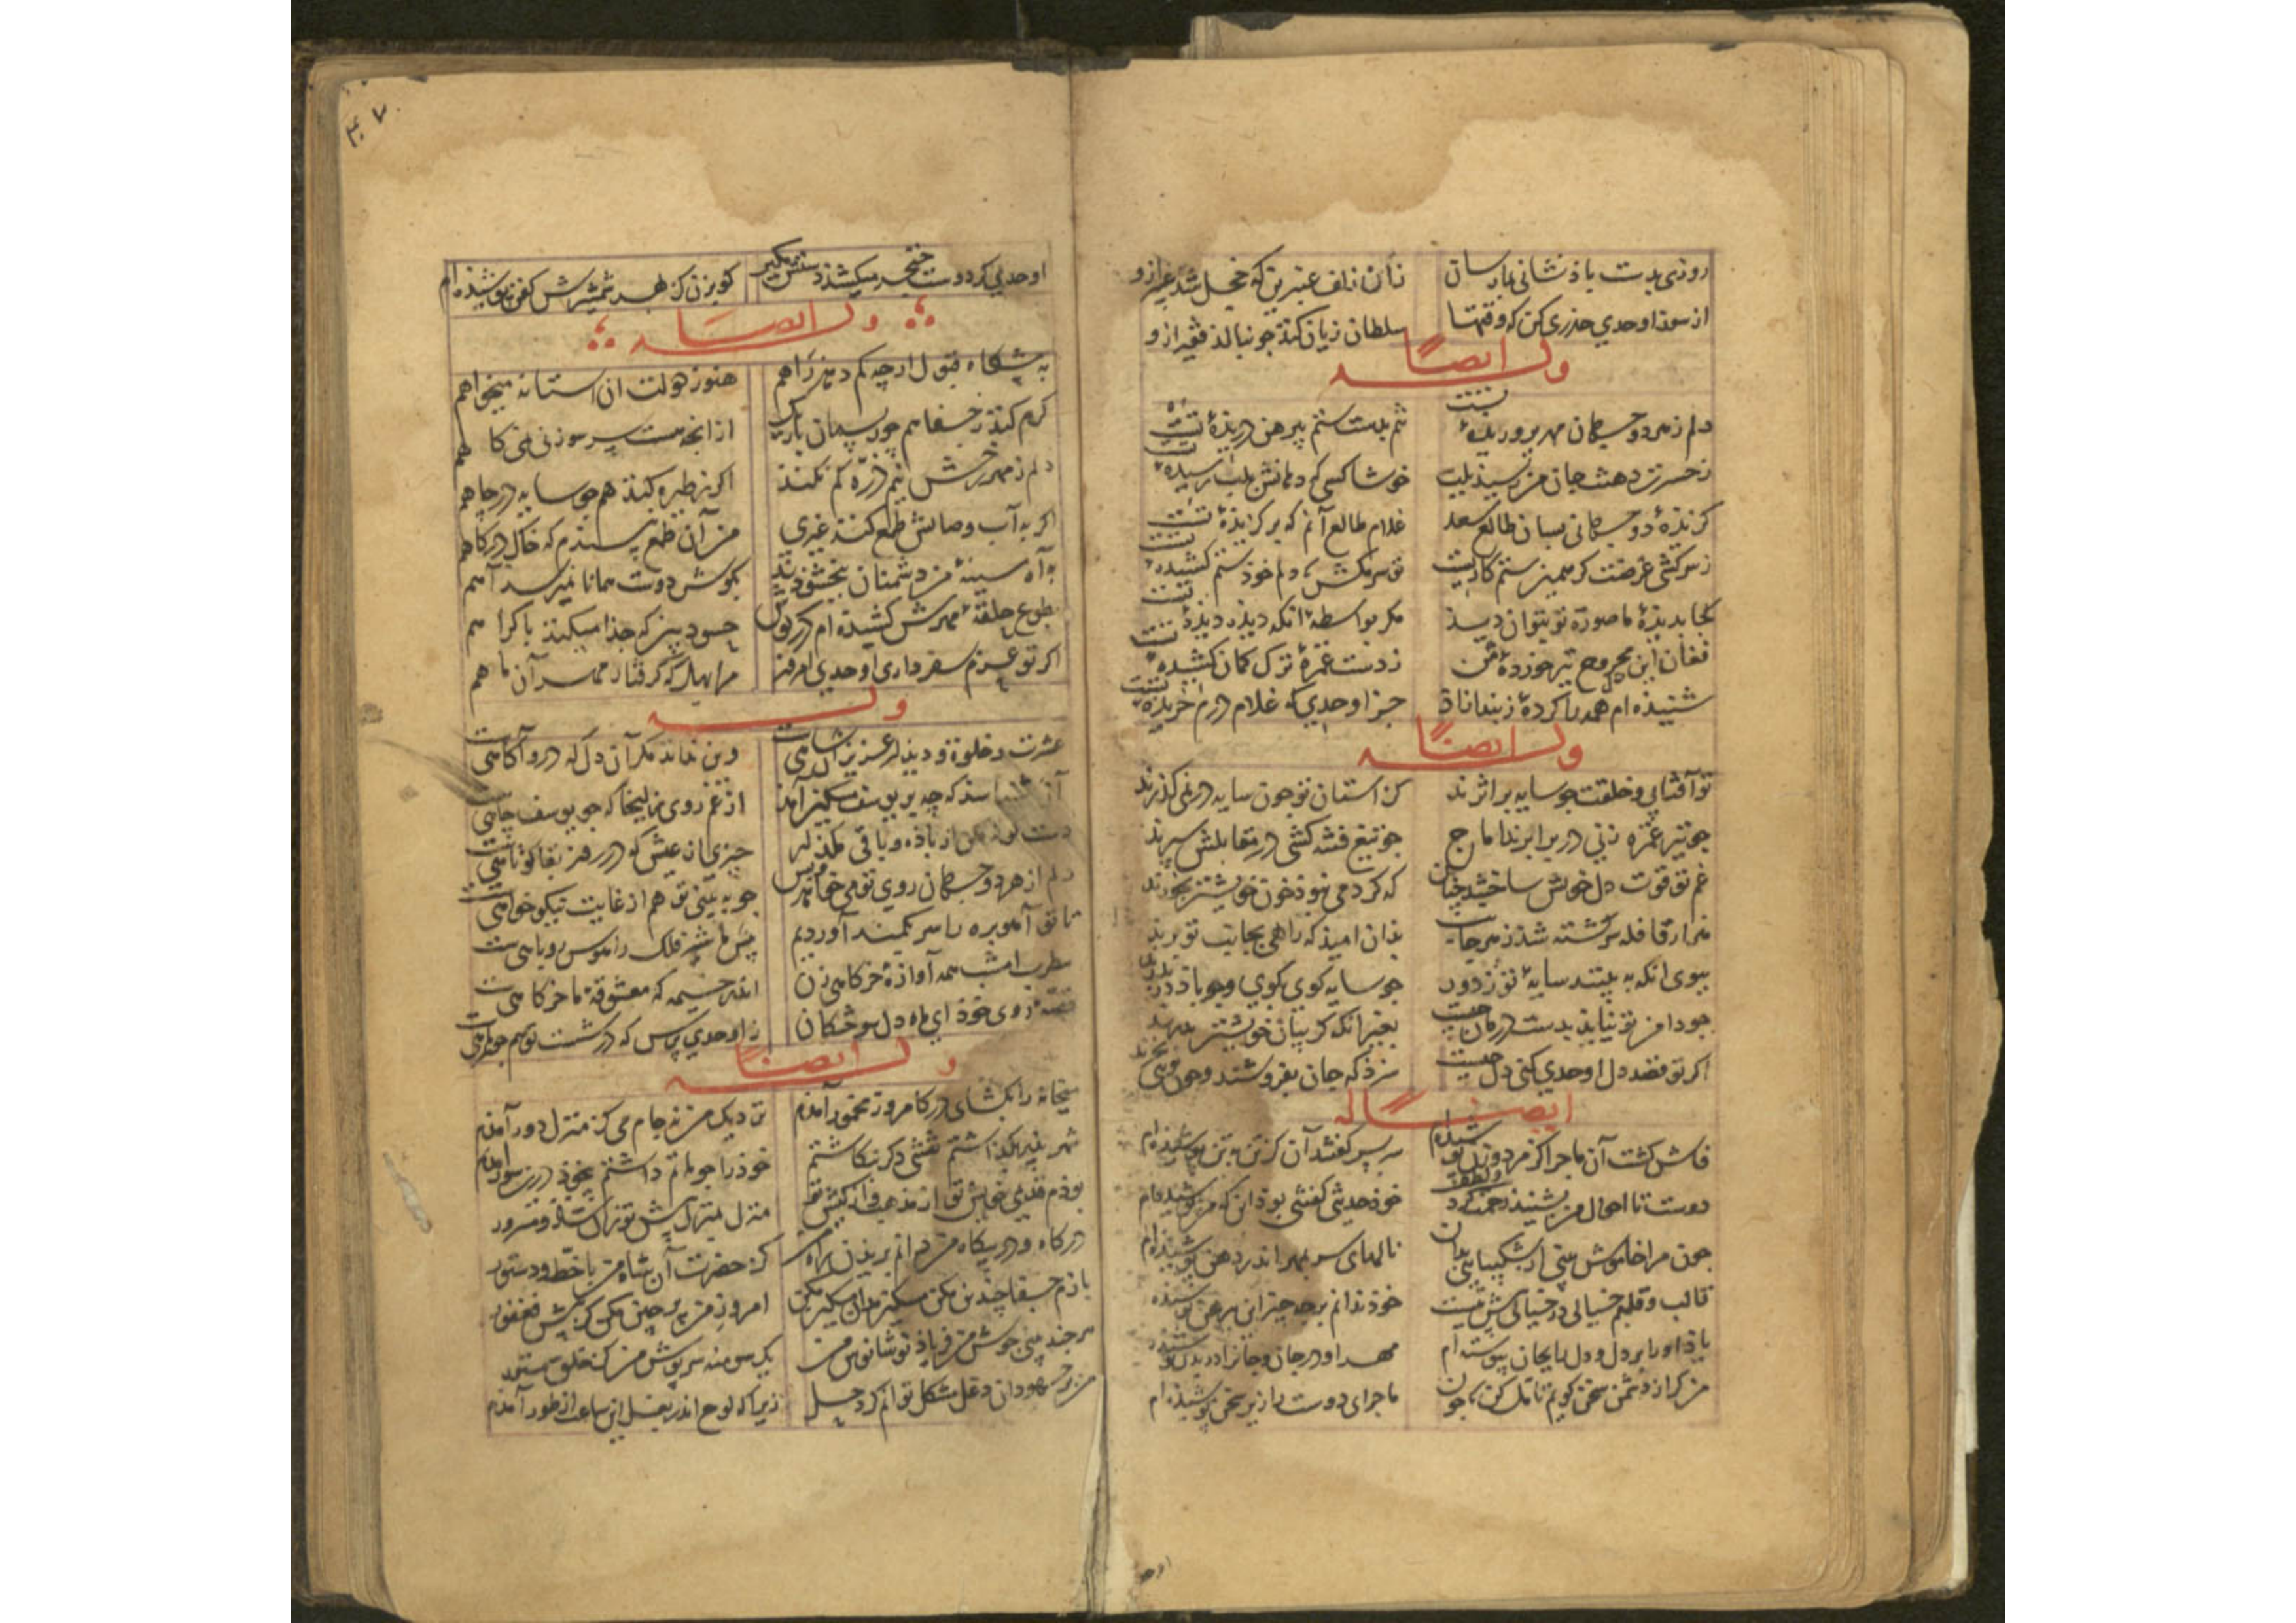 روزی بدست باذ نشانی بما رسان
زان زلف عنبرین که خجل شد عبیر ازو
از سوز اوحدی حذری کن که وقتها
سلطان زیان کند چو بنالد فقیر ازو
وله ایضاً
دلم ز هر دو جهان مهر پروریده تست
تنم بدست ستم پیرهن دریده تست
ز حسرت دهنت جان من رسید بلب
خوشا کسی که دهانش بلب رسیده تست
گزیده دو جهانی بسان طالع سعد
غلام طالع آنم که برگزیده تست
ز سرکشی غرضت گر همین ستمکاریست
تو سر مکش که دلم خود ستم کشیده تست
کجا بدیده ما صورة تو بتوان دید
مگر بواسطه آنکه دیده دیده تست
فغان این مجروح تیر خورده من
ز دست غمزه ترک کمان کشیده تست
شنیده ام همه را کرده ز بند آزاد
جز اوحدی که غلام درم خریده تست
وله ایضاً
تو آفتابی و خلقت چو سایه بر اثرند
کز استان تو چون سایه در نمی گذرند
چو تیر غمزه زنی در برابرند اماج
چو تیغ فتنه کشی در مقابلش سپرند
غم تو قوت دل خویش ساختند چنان
که گر دمی نبود خون خویشتن بخورند
هزار قافله سرگشته شد ز هر جانب
بدان امید که راهی بجانب تو برند
ببوی آنکه به بینند سایه تو ز دور
چو سایه کوی بکوی و چو باذ دربدرند
چو دامن تو نیاید بدست درمان چیست
بغیر آنکه گریبان خویشتن بدرند
اگر تو قصد دل اوحدی کنی دل چیست
سزد که جان بفروشند و چون تویی بخرند
ایضاً له
فاش گشت آن ماجرا کز مرد و زن پوشیده ام
بر سر گفتند آن کز تن به تن پوشیده ام
دوست تا احوال من بشنید رحمت کرد و لطف
خود حدیثی گفتنی بود این که من پوشیده ام
چون مرا خاموش بینی از شکیبایی بدان
نالهای سر بمهر اندر دهن پوشیده ام
قالب و قلبم خیالی در خیالی بیش نیست
خود ندانم بر چه چیز این پیرهن پوشیده ام
یاذ او را بر دل و دل را بجان پیوسته ام
مهر او در جان و جان را در بدن پوشیده ام
من گر از دشمن سخن گویم تامل کن که چون
ماجرای دوست را زیر سخن پوشیده ام
اوحدی گر دوست خنجر میکشد دستش مگیر
گو بزن کز بهر شمشیرش کفن پوشیده ام
وله ایضاً
به پیشگاه قبول ار چه کم دهد راهم
هنوز دولت ان استانه میخواهم
گرم کنند ز جفا هم چو ریسمان باریک
از انچه هست سر سوزنی نمی کاهم
دلم ز مهر رخش نیم ذره کم نکند
اگر به طیره کند هم چو سایه در چاهم
گر به آب وصالش طمع کند غیری
من آن طمع نپسندم که خاک درگاهم
به آه سینه من دشمنان ببخشودند
بگوش دوست همانا نمیرسد آهم
بطوع حلقه مهرش کشیده ام در گوش
حسود بین که جدا میکند باکراهم
اگر تو عزم سفر داری اوحدی امروز
مرا بهل که گرفتار مهر آن ماهم
وله
عشرت و خلوة و دیدار عزیزان شاهیست
وین نداند مگر آن دل که درو آگاهیست
از غم روی زلیخا که چو یوسف چاهیست
چیزی ان عیش که در روز بقا کوتاهیست
دلم از هر دو جهان روی تو می خواهد و بس
چو به بینی تو هم از غایت نیکو خواهیست
تا تو آهو بره را سر بکمند آوردیم
پیش ما شیر فلک را هوس روباهیست
مطرب امشب همه آوازه خرگاهی زن
اندر خیمه که معشوقه ما خرگاهیست
قصه روی خود ای ماه دل سوختگان
ز اوحدی پرس که در شست تو هم چون ماهیست
وله ایضاً
میخانه را بگشای در کامروز مخمور آمدم
نزدیک من نه جام می کز منزل دور آمدم
شهر پدر بگذاشتم نقشی دگر نگاشتم
خود را چو ماتم داشتم بیخود درین سور آمدم
درگاه و در بیگاه من دانم بریدن راه من
کز حضرت آن شاه من با خط و دستور آمدم
بازم جفا چندین مکن مسکینم ای مسکین مکن
امروز من پر چین مکن کز پیش فغفور آمدم
هر چند بینی جوش من فریاد نوشانوش من
یک سو منه سرپوش من کز خلق مستور آمدم
زیرا که لوح اندر بغل این ساعت از طور آمدم